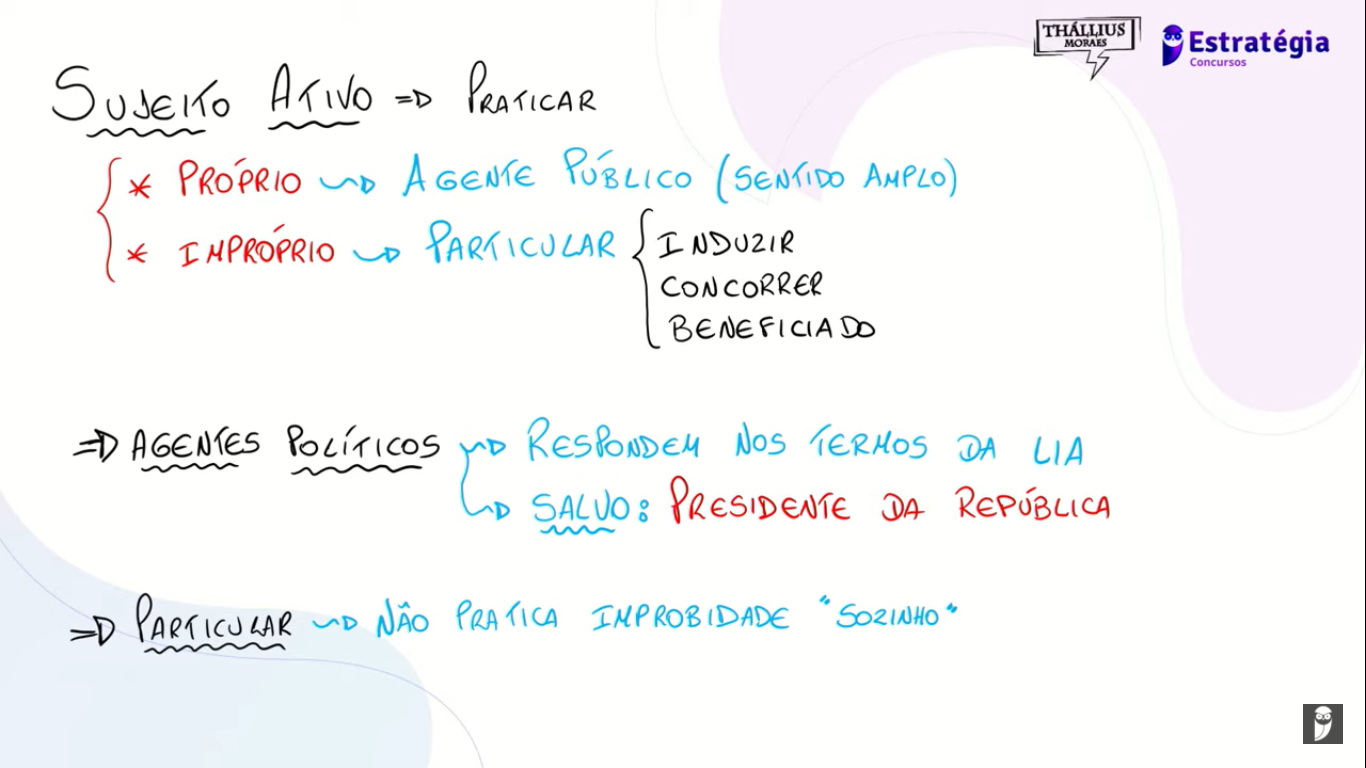 THÁLLIUS
MORAES
Estratégia
Concursos
SUJEITO ATIVO => PRATICAR
* PRÓPRIO ~> AGENTE PÚBLICO (SENTIDO AMPLO)
* IMPRÓPRIO ~> PARTICULAR { INDUZIR
CONCORRER
BENEFICIADO
=> AGENTES POLÍTICOS ~> RESPONDEM NOS TERMOS DA LIA
~> SALVO: PRESIDENTE DA REPÚBLICA
=> PARTICULAR ~> NÃO PRATICA IMPROBIDADE "SOZINHO"